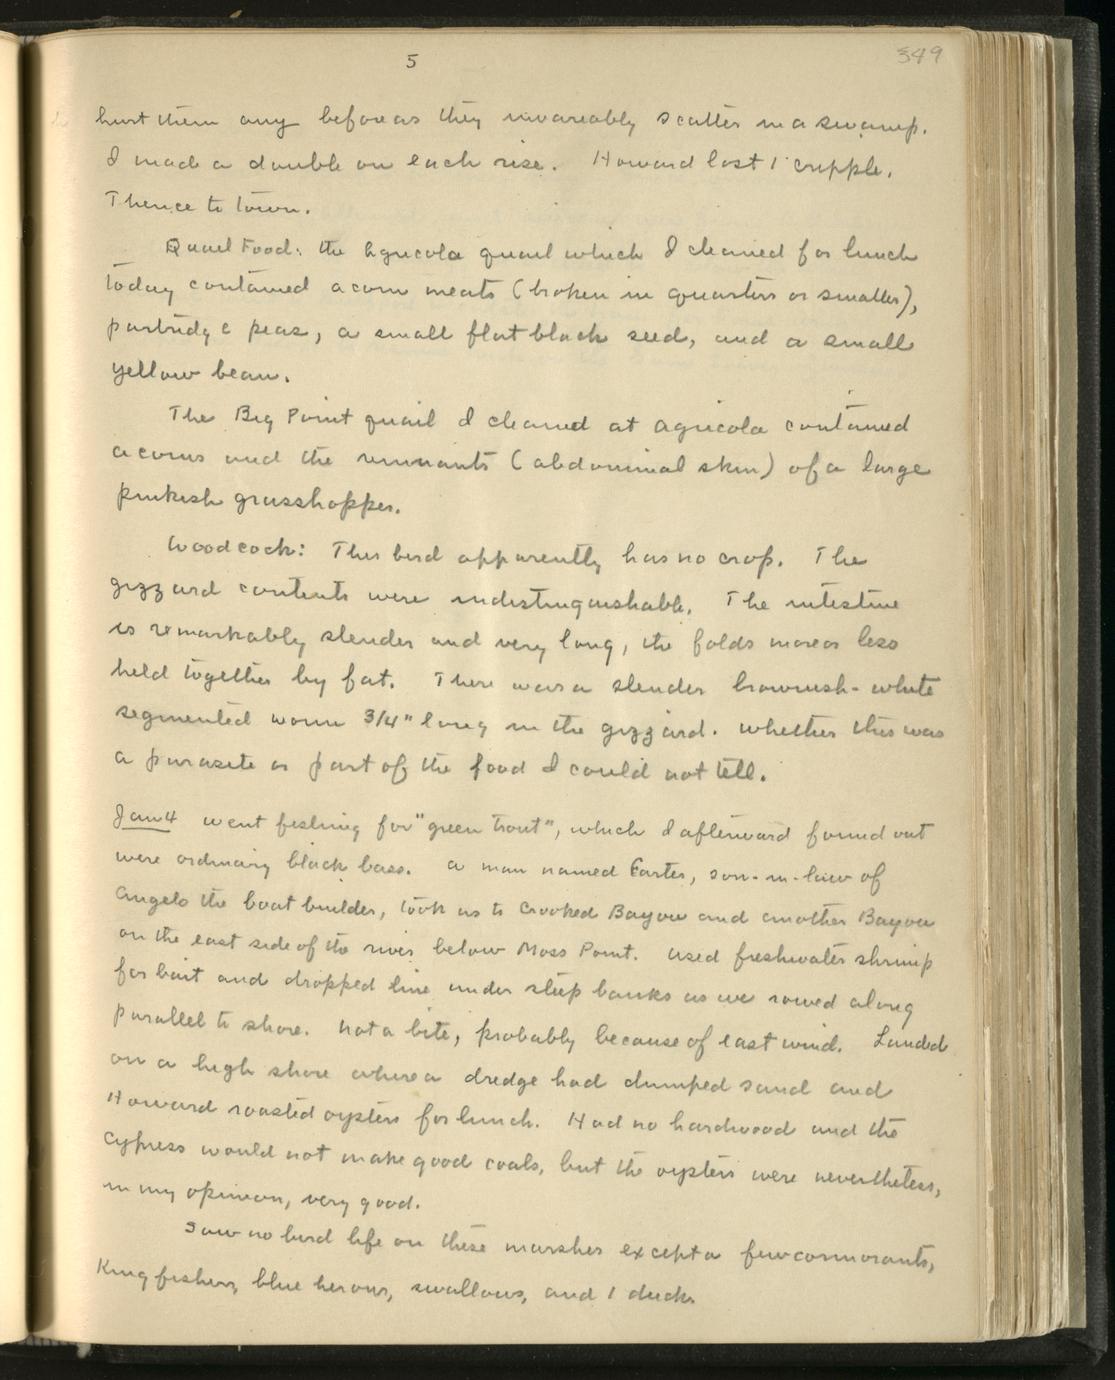 5
349
hurt them any before as they invareably scatter in a swamp.
I made a double on each rise. Howard lost 1 cripple.
Thence to town.
Quail Food: the Agricola quail which I cleaned for lunch
today contained acorn meats (broken in quarters or smaller),
partridge peas, a small flat black seed, and a small
yellow bean.
The Big Point quail I cleaned at Agricola contained
acorns and the remnants (abdominal skin) of a large
pinkish grasshopper.
Woodcock: This bird apparently has no crop. The
gizzard contents were indistinguishable. The intestine
is remarkably slender and very long, the folds more or less
held together by fat. There was a slender brownish-white
segmented worm 3/4" long in the gizzard. Whether this was
a parasite or part of the food I could not tell.
Jan 4 went fishing for "green trout", which I afterward found out
were ordinary black bass. A man named Farter, son-in-law of
Angelo the boat builder, took us to Crooked Bayou and another Bayou
on the east side of the river below Moss Point. Used freshwater shrimp
for bait and dropped line under steep banks as we rowed along
parallel to shore. Not a bite, probably because of east wind. Landed
on a high shore where a dredge had dumped sand and
Howard roasted oysters for lunch. Had no hardwood and the
cypress would not make good coals, but the oysters were nevertheless,
in my opinion, very good.
Saw no bird life on these marshes except a few cormorants,
Kingfishers, blue herons, swallows, and 1 duck.